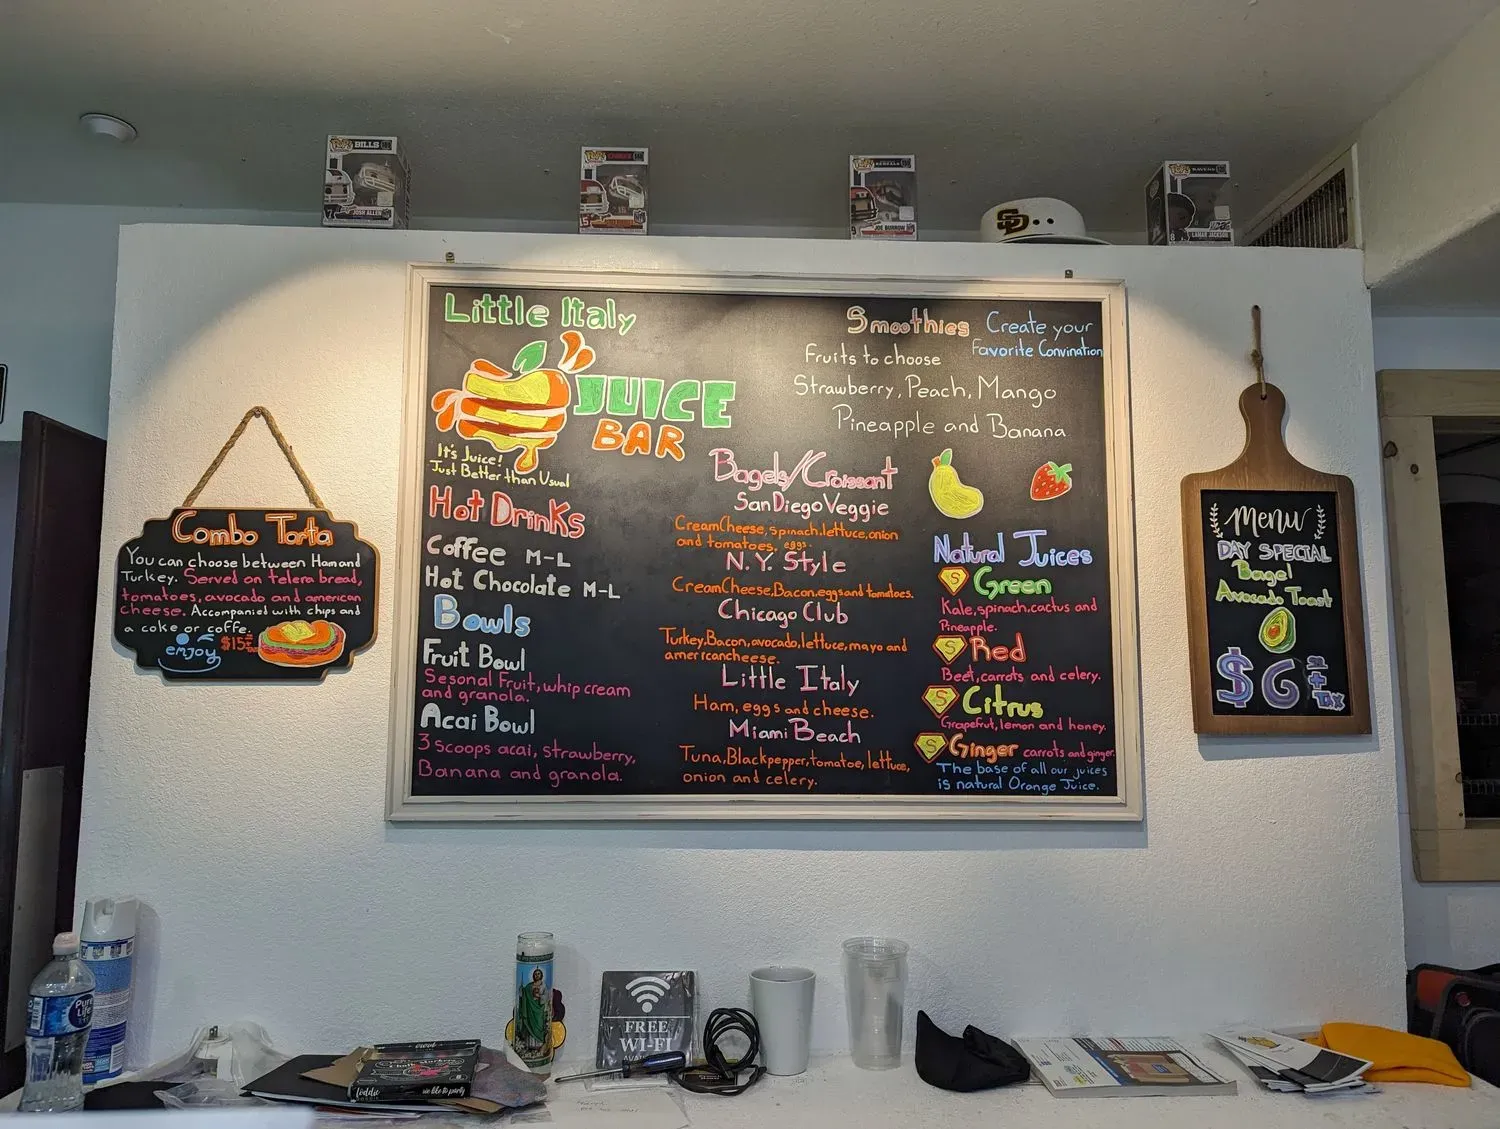 BILLS
7
JOSH ALLEN
JOE BURROW
SD
RAVENS
8
LAMAR JACKSON
Combo Torta
You can choose between Ham and
Turkey. Served on telera bread,
tomatoes, avocado and american
cheese. Accompanied with chips and
a coke or coffe.
enjoy
$15
Little Italy
JUICE
BAR
It's Juice!
Just Better than Usual
Hot Drinks
Coffee M-L
Hot Chocolate M-L
Bowls
Fruit Bowl
Sesonal Fruit, whip cream
and granola.
Acai Bowl
3 scoops acai, strawberry,
Banana and granola.
Bagels/Croissant
San Diego Veggie
Cream Cheese, spinach, lettuce, onion
and tomatoes. eggs.
N.Y. Style
Cream Cheese, Bacon, eggs and tomatoes.
Chicago Club
Turkey, Bacon, avocado, lettuce, mayo and
american cheese.
Little Italy
Ham, eggs and cheese.
Miami Beach
Tuna, Black pepper, tomatoe, lettuce,
onion and celery.
Smoothies
Create your
Favorite Convination
Fruits to choose
Strawberry, Peach, Mango
Pineapple and Banana
Natural Juices
S Green
Kale, spinach, cactus and
Pineapple.
S Red
Beet, carrots and celery.
S Citrus
Grapefrut, lemon and honey.
S Ginger carrots and ginger.
The base of all our juices
is natural Orange Juice.
Menu
DAY SPECIAL
Bagel
Avocado Toast
$6
+
Tax
Pure
Life
FREE
WI-FI
we like to party